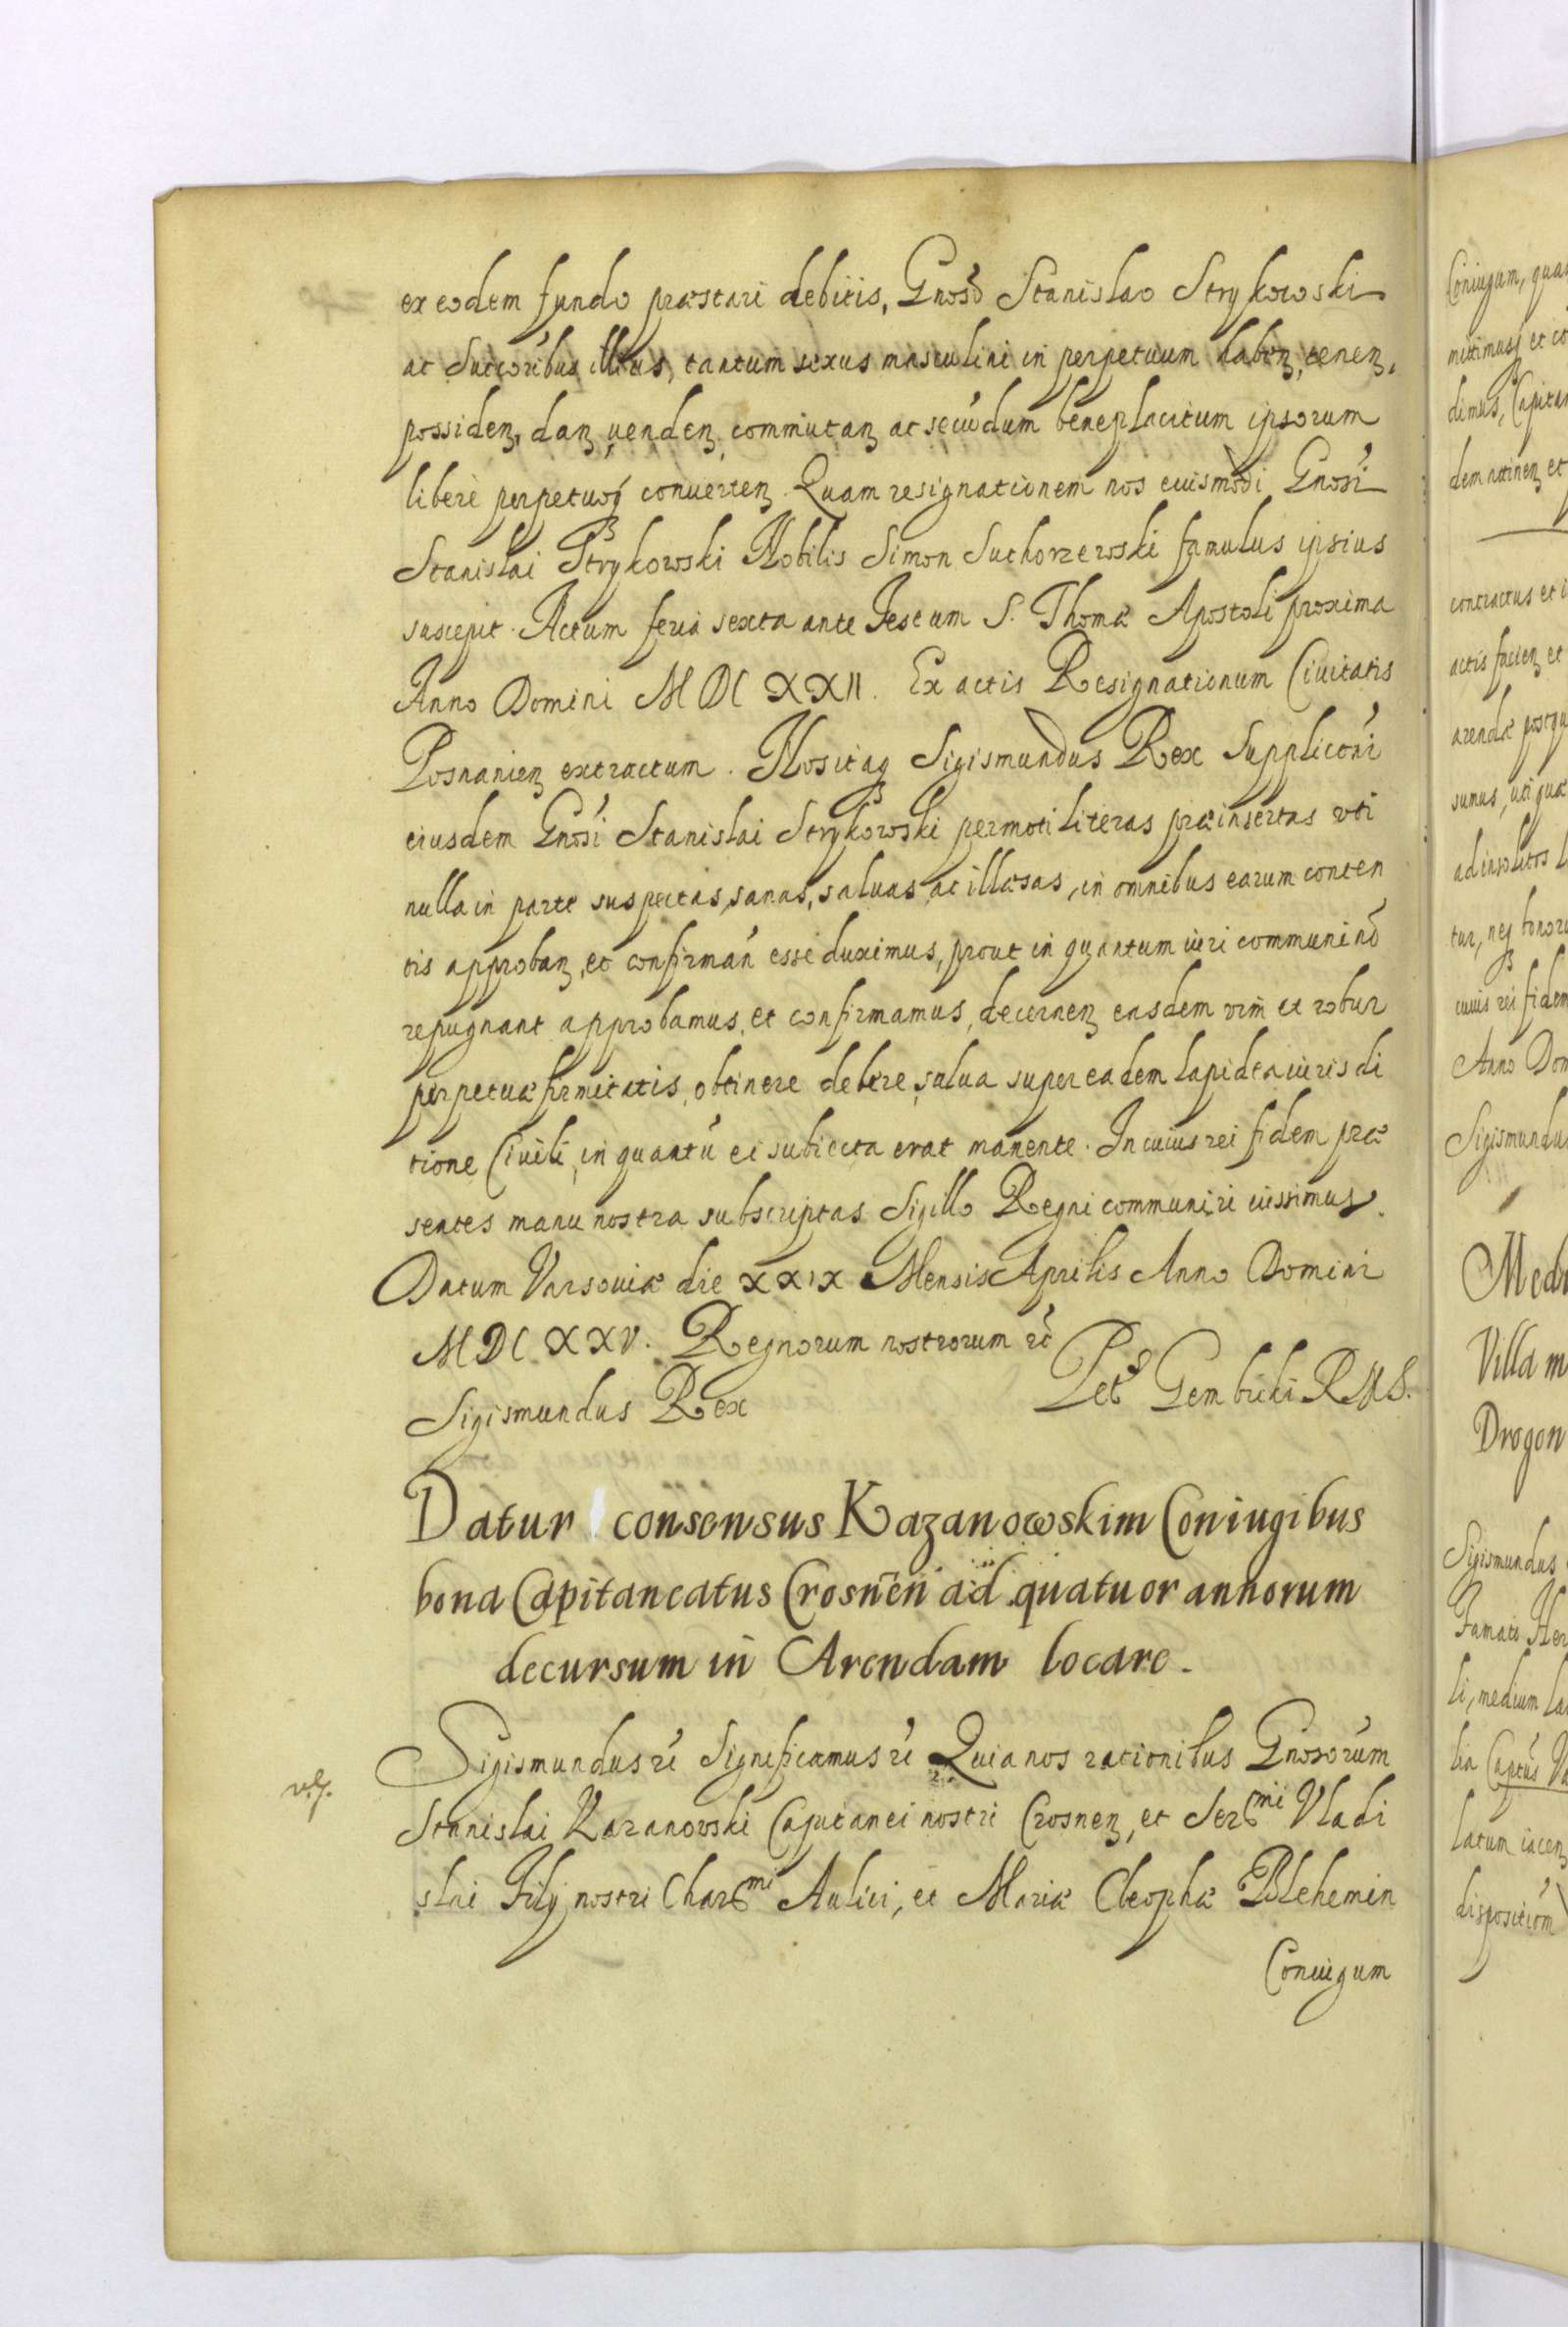 ex eodem fundo præstari debitis, Gnoso Stanislao Strykowski
ac Succoribus illius, tantum sexus masculini in perpetuum haben, tenen,
possiden, dan, venden, commutan ac secūdum beneplacitum ipsorum
liberè perpetuoq conuerten. Quam resignationem nos euismodi Gnosi
Stanislai Strykowski Nobilis Simon Suchorzewski famulus ipsius
suscepit. Actum feria sexta ante Festum S. Thomæ Apostoli proxima
Anno Domini MDCXXII. Ex actis Resignationum Ciuitatis
Posnanien extractum. Nos itaq Sigismundus Rex Supplicōni
eiusdem Gnosi Stanislai Strykowski permoti literas præinsertas uti
nulla in parte suspectas, sanas, saluas, ac illæsas, in omnibus earum conten
tis approban, et confirmān esse duximus, prout in quantum iuri communi nō
repugnant approbamus, et confirmamus, decernen easdem vim et robur
perpetuæ firmitatis, obtinere debere, salua super eadem lapidea iuris di
tione Ciuili, in quantū ei subiecta erat manente. In cuius rei fidem præ
sentes manu nostra subscriptas Sigillo Regni communiri iussimus.
Datum Varsouiæ die XXIX Mensis Aprilis Anno Domini
MDCXXV. Regnorum nostrorum etc
Sigismundus Rex
Pets Gembicki R M S.
Datur consensus Kazanowskim Coniugibus
bona Capitaneatus Crosnēn ad quatuor annorum
decursum in Arendam locare.
Sigismundus etc Significamus etc Quia nos rationibus Gnosorum
Stanislai Kazanowski Capitanei nostri Crosnen, et Sermi Vladi
slai Filij nostri Charmi Aulici, et Mariæ Cleophæ Blehemin
Coniugum
Coniugum, qua
mittimusq et co
dimus, Capitan
dem attinen et
contractus et i
actis facien et
arendæ postqu
sumus, uti quæ
ad insolitos l
tur, neq honoru
cuius rei fidem
Anno Dom
Sigismundus
Villa m
Drogon
Sigismundus
Famati Her
li, medium la
latum iacen
dispositiōm